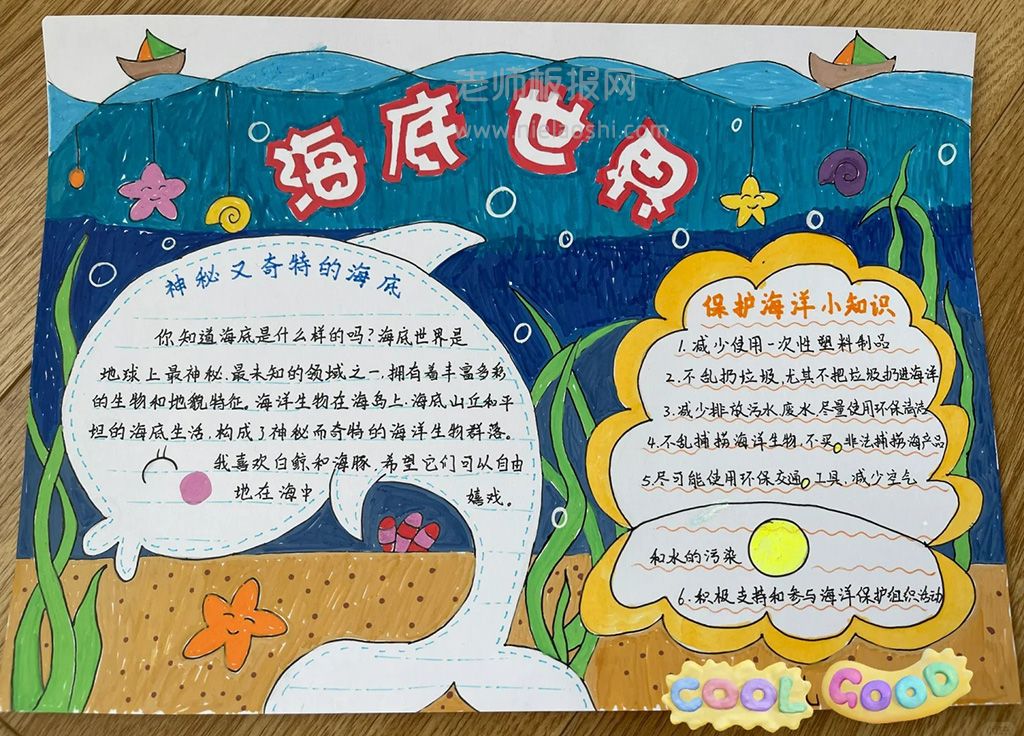 老师板报网
www.nielaoshi.com
海底世界
神秘又奇特的海底
你知道海底是什么样的吗?海底世界是
地球上最神秘、最未知的领域之一,拥有着丰富多彩
的生物和地貌特征。海洋生物在海岛上、海底山丘和平
坦的海底生活,构成了神秘而奇特的海洋生物群落。
我喜欢白鲸和海豚,希望它们可以自由
地在海中嬉戏。
保护海洋小知识
1.减少使用一次性塑料制品
2.不乱扔垃圾,尤其不把垃圾扔进海洋
3.减少排放污水、废水,尽量使用环保清洁
4.不乱捕捞海洋生物,不买非法捕捞海产品
5.尽可能使用环保交通工具,减少空气
和水的污染
6.积极支持和参与海洋保护组织活动
COOL
GOOD